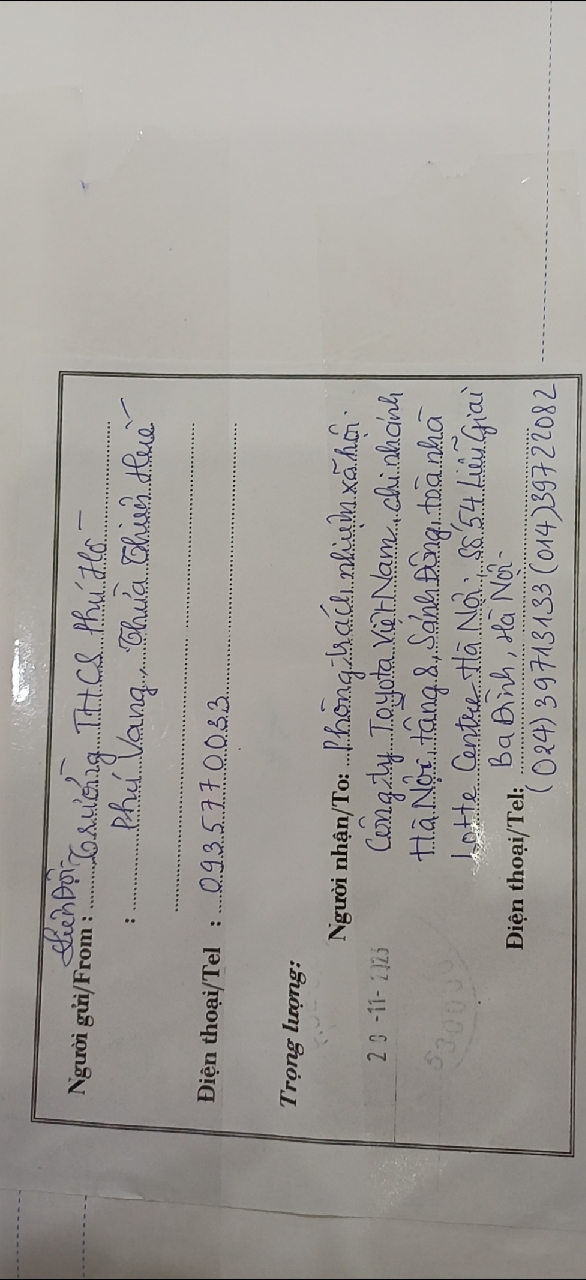 Liên Đội
Người gửi/From : Trường THCS Phú Hồ
: Phú Vang, Thừa Thiên Huế
Điện thoại/Tel : 0935770033
Trọng lượng:
Người nhận/To: Phòng trách nhiệm xã hội.
Công ty Toyota Việt Nam, chi nhánh
Hà Nội, tầng 8, Sảnh Đông, toà nhà
Lotte Centre Hà Nội. Số 54 Liễu Giai
Ba Đình, Hà Nội.
Điện thoại/Tel: (024)39713133 (014)39722082
-11-
530000